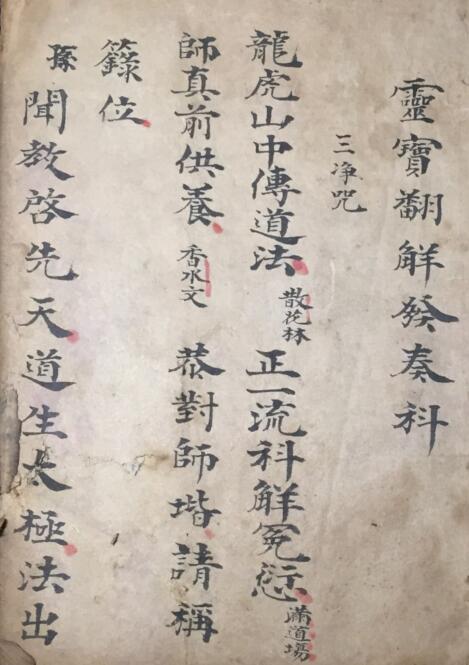 靈寶翻觧發奏科
三净咒
龍虎山中傳道法散花林正一流科觧冤愆滿道場
師真前供養香水文恭對師堦請稱
籙位
孫聞教啓先天道生太極法出